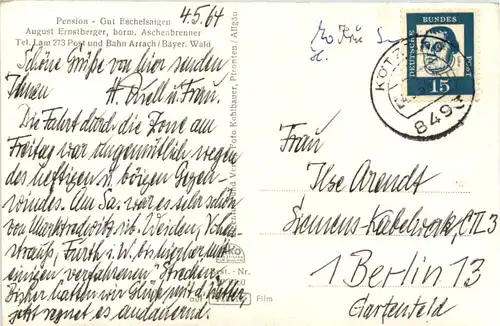 Pension - Gut Eschelsaigen
August Ernstberger, borm. Aschenbrenner
Tel. Lam 273 Post und Bahn Arrach/Bayer. Wald
4.5.64
Schöne Grüße von hier senden
Ihnen H. u. Frau.
Die Fahrt durch die Zone am
Freitag war ungemütlich wegen
des heftigen u. böigen Gegen-
windes. Am Sa. war es sehr schön
von Marktredwitz üb. Weiden, Vohen-
strauß, Furth i. W. bis hierher mit
einigen verfahrenen Strecken.
Bisher hatten wir Glück mit d. Wetter,
jetzt regnet es andauernd.
Foto Kohlbauer, Pfronten/Allgäu
Film
DEUTSCHE
BUNDES
POST
15
KÖTZ
8493
Frau
Ilse Arendt
Siemens-Kabelwerk,
1 Berlin 13
Gartenfeld